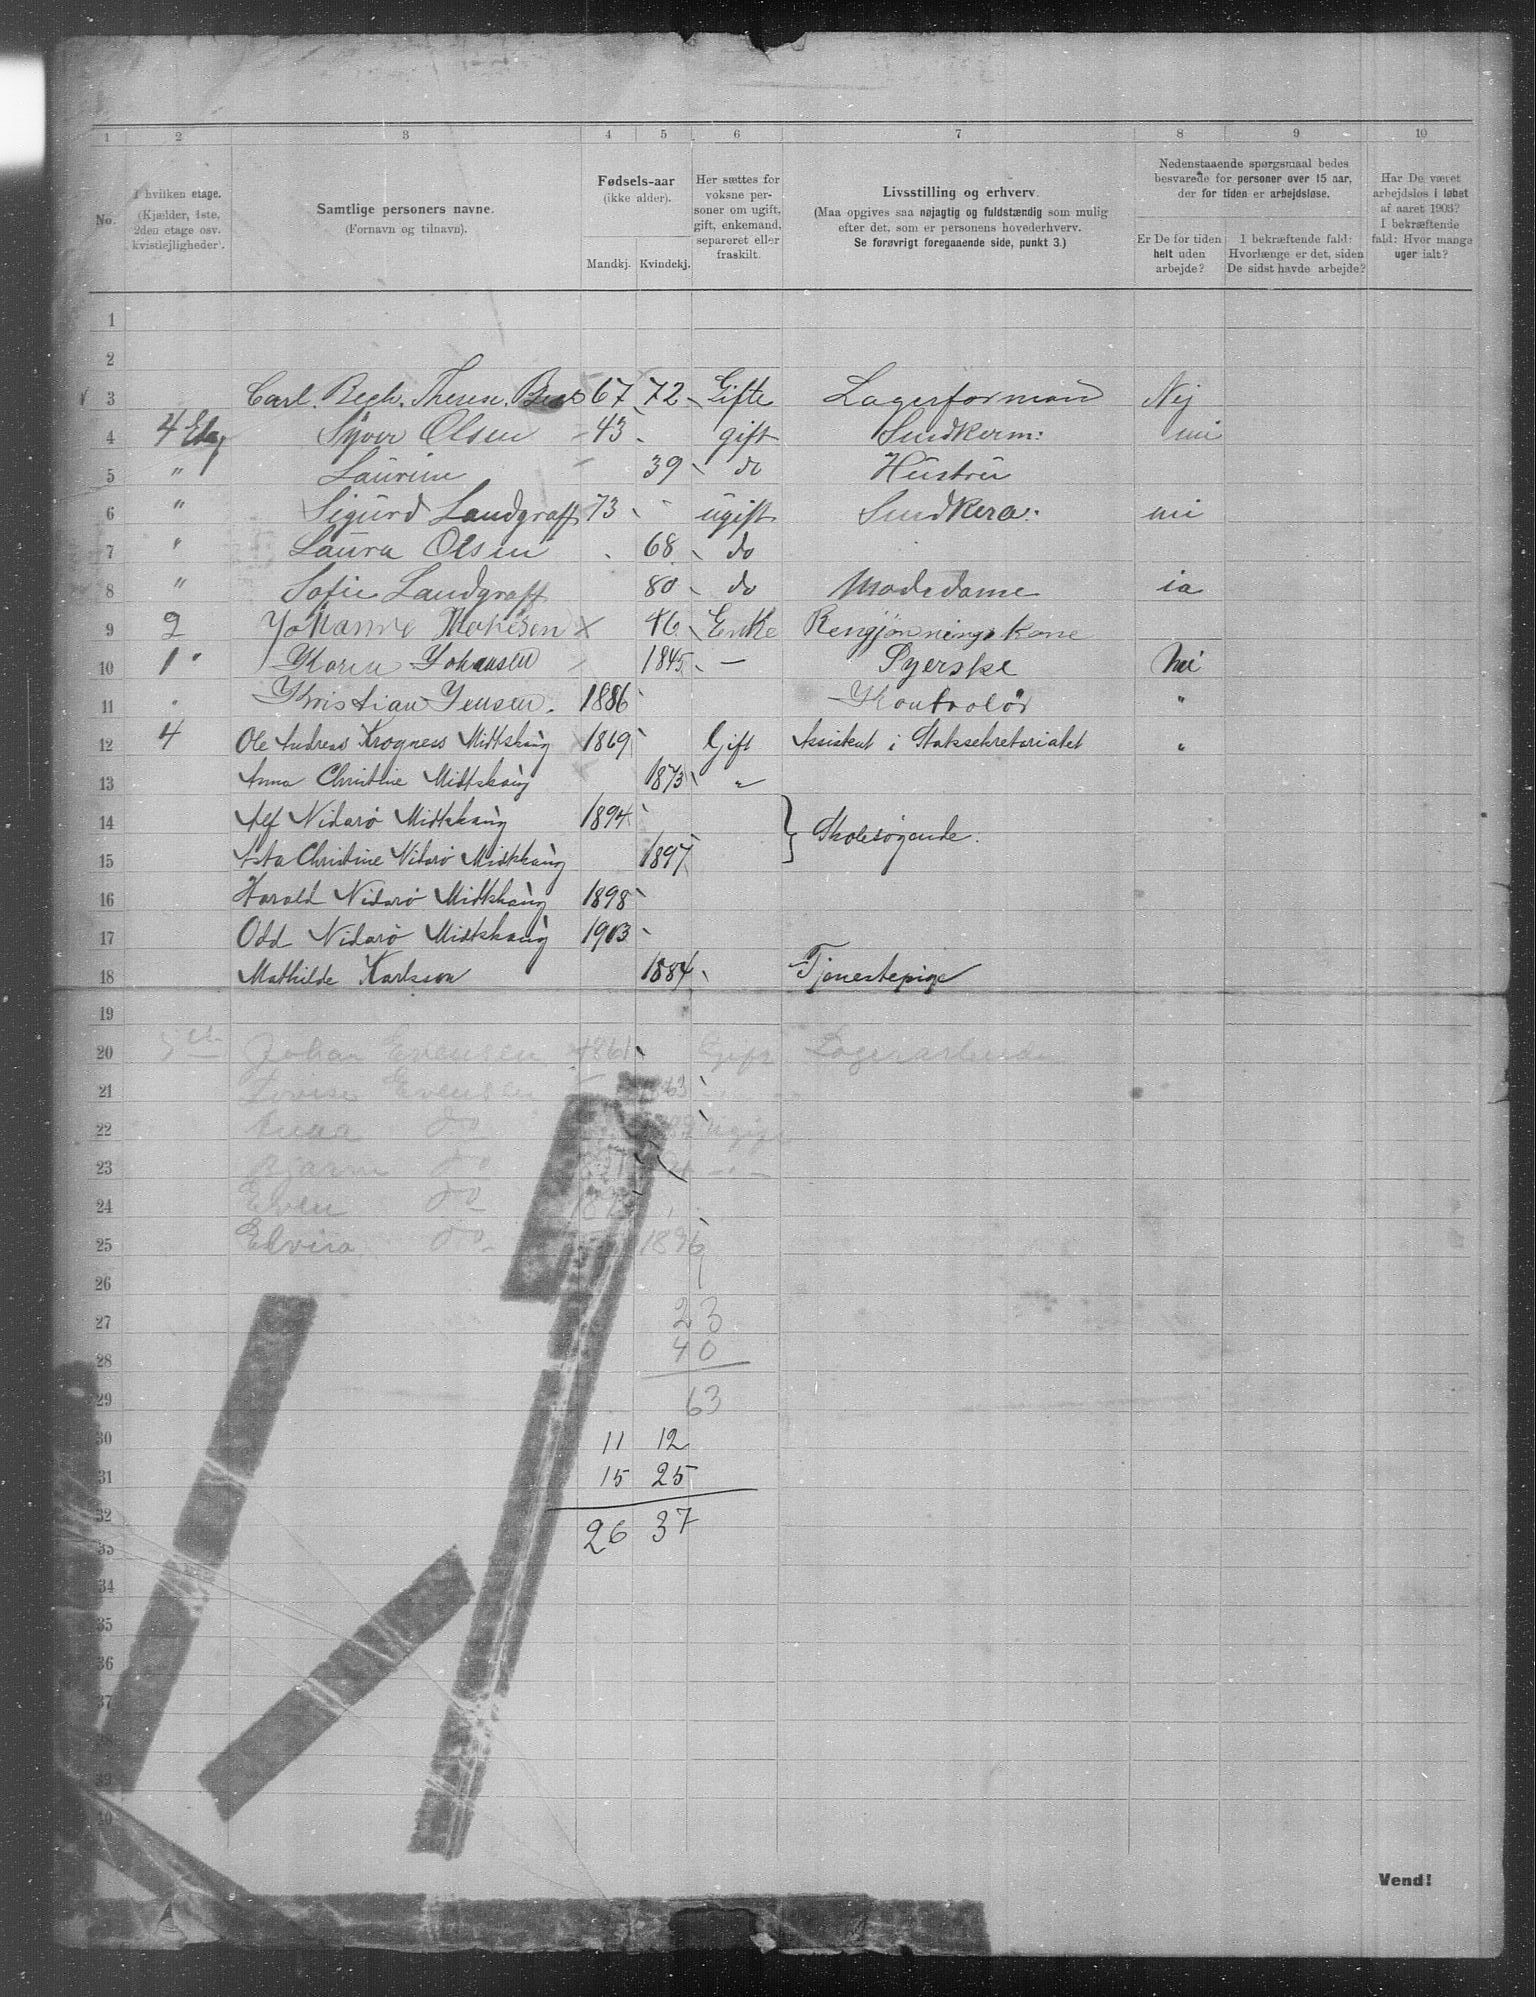 1 2 3 4 5 6 7 8 9 10
No.
I hvilken etage.
(Kjælder, 1ste,
2den etage osv.
kvistlejligheder).
Samtlige personers navne.
(Fornavn og tilnavn).
Fødsels-aar
(ikke alder).
Mandkj. Kvindekj.
Her sættes for
voksne per-
soner om ugift,
gift, enkemand,
separeret eller
fraskilt.
Livsstilling og erhverv.
(Maa opgives saa nøjagtig og fuldstændig som mulig
efter det, som er personens hovederhverv.
Se forøvrigt foregaaende side, punkt 3.)
Nedenstaaende spørgsmaal bedes
besvarede for personer over 15 aar,
der for tiden er arbejdsløse.
Er De for tiden
helt uden
arbejde?
I bekræftende fald:
Hvorlænge er det, siden
De sidst havde arbejde?
Har De været
arbejdsløs i løbet
af aaret 1903?
I bekræftende
fald: Hvor mange
uger ialt?
1
2
3 Carl. Bech. Therese. 67 72 Gifte Lagerformand Nej
4 4 Etag Syver Olsen 43 gift Snedkerm: nei
5 " Laurine 39 do Hustru
6 " Sigurd Landgraff 73 ugift Snedkera: nei
7 " Laura Olsen 68 do
8 " Sofie Landgraff 80 do Modedame ia
9 2 Johanne 46 Enke Rengjørningskone
10 1 " Karen Johansen 1845 — Syerske Nei
11 " Kristian Jensen. 1886 Kontrolør "
12 4 Ole Andreas Krogness Midtskaug 1869 Gift Assistent i Statssekretariatet "
13 Anna Christine Midtskaug 1873 "
14 Alf Nidarø Midtskaug 1894 } Skolesøgende.
15 Asta Christine Nidarø Midtskaug 1897
16 Harald Nidarø Midtskaug 1898
17 Odd Nidarø Midtskaug 1903
18 Mathilde Karlsson 1884 Tjenestepige
19
20 5 et Johan Evensen 1861 Gift Lagerarbeider
21 Lovise Evensen 63
22 Anna do ugift
23 Bjarne do
24 Even do
25 Elvira do 1896
26
27 23
28 40
29 63
30 11 12
31 15 25
32 26 37
33
34
35
36
37
38
39
40
Vend!